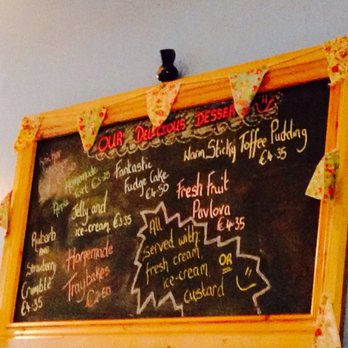 OUR DELICIOUS DESSERTS
Homemade
Apple Tart €3.35
Jelly and
ice-cream €3.35
Rhubarb
Strawberry
Crumble
€4.35
Homemade
Traybakes
Fantastic
Fudge Cake
€4.50
Warm Sticky Toffee Pudding
€4.35
Fresh Fruit
Pavlova
€4.35
All
served with
fresh cream
ice-cream
OR
custard